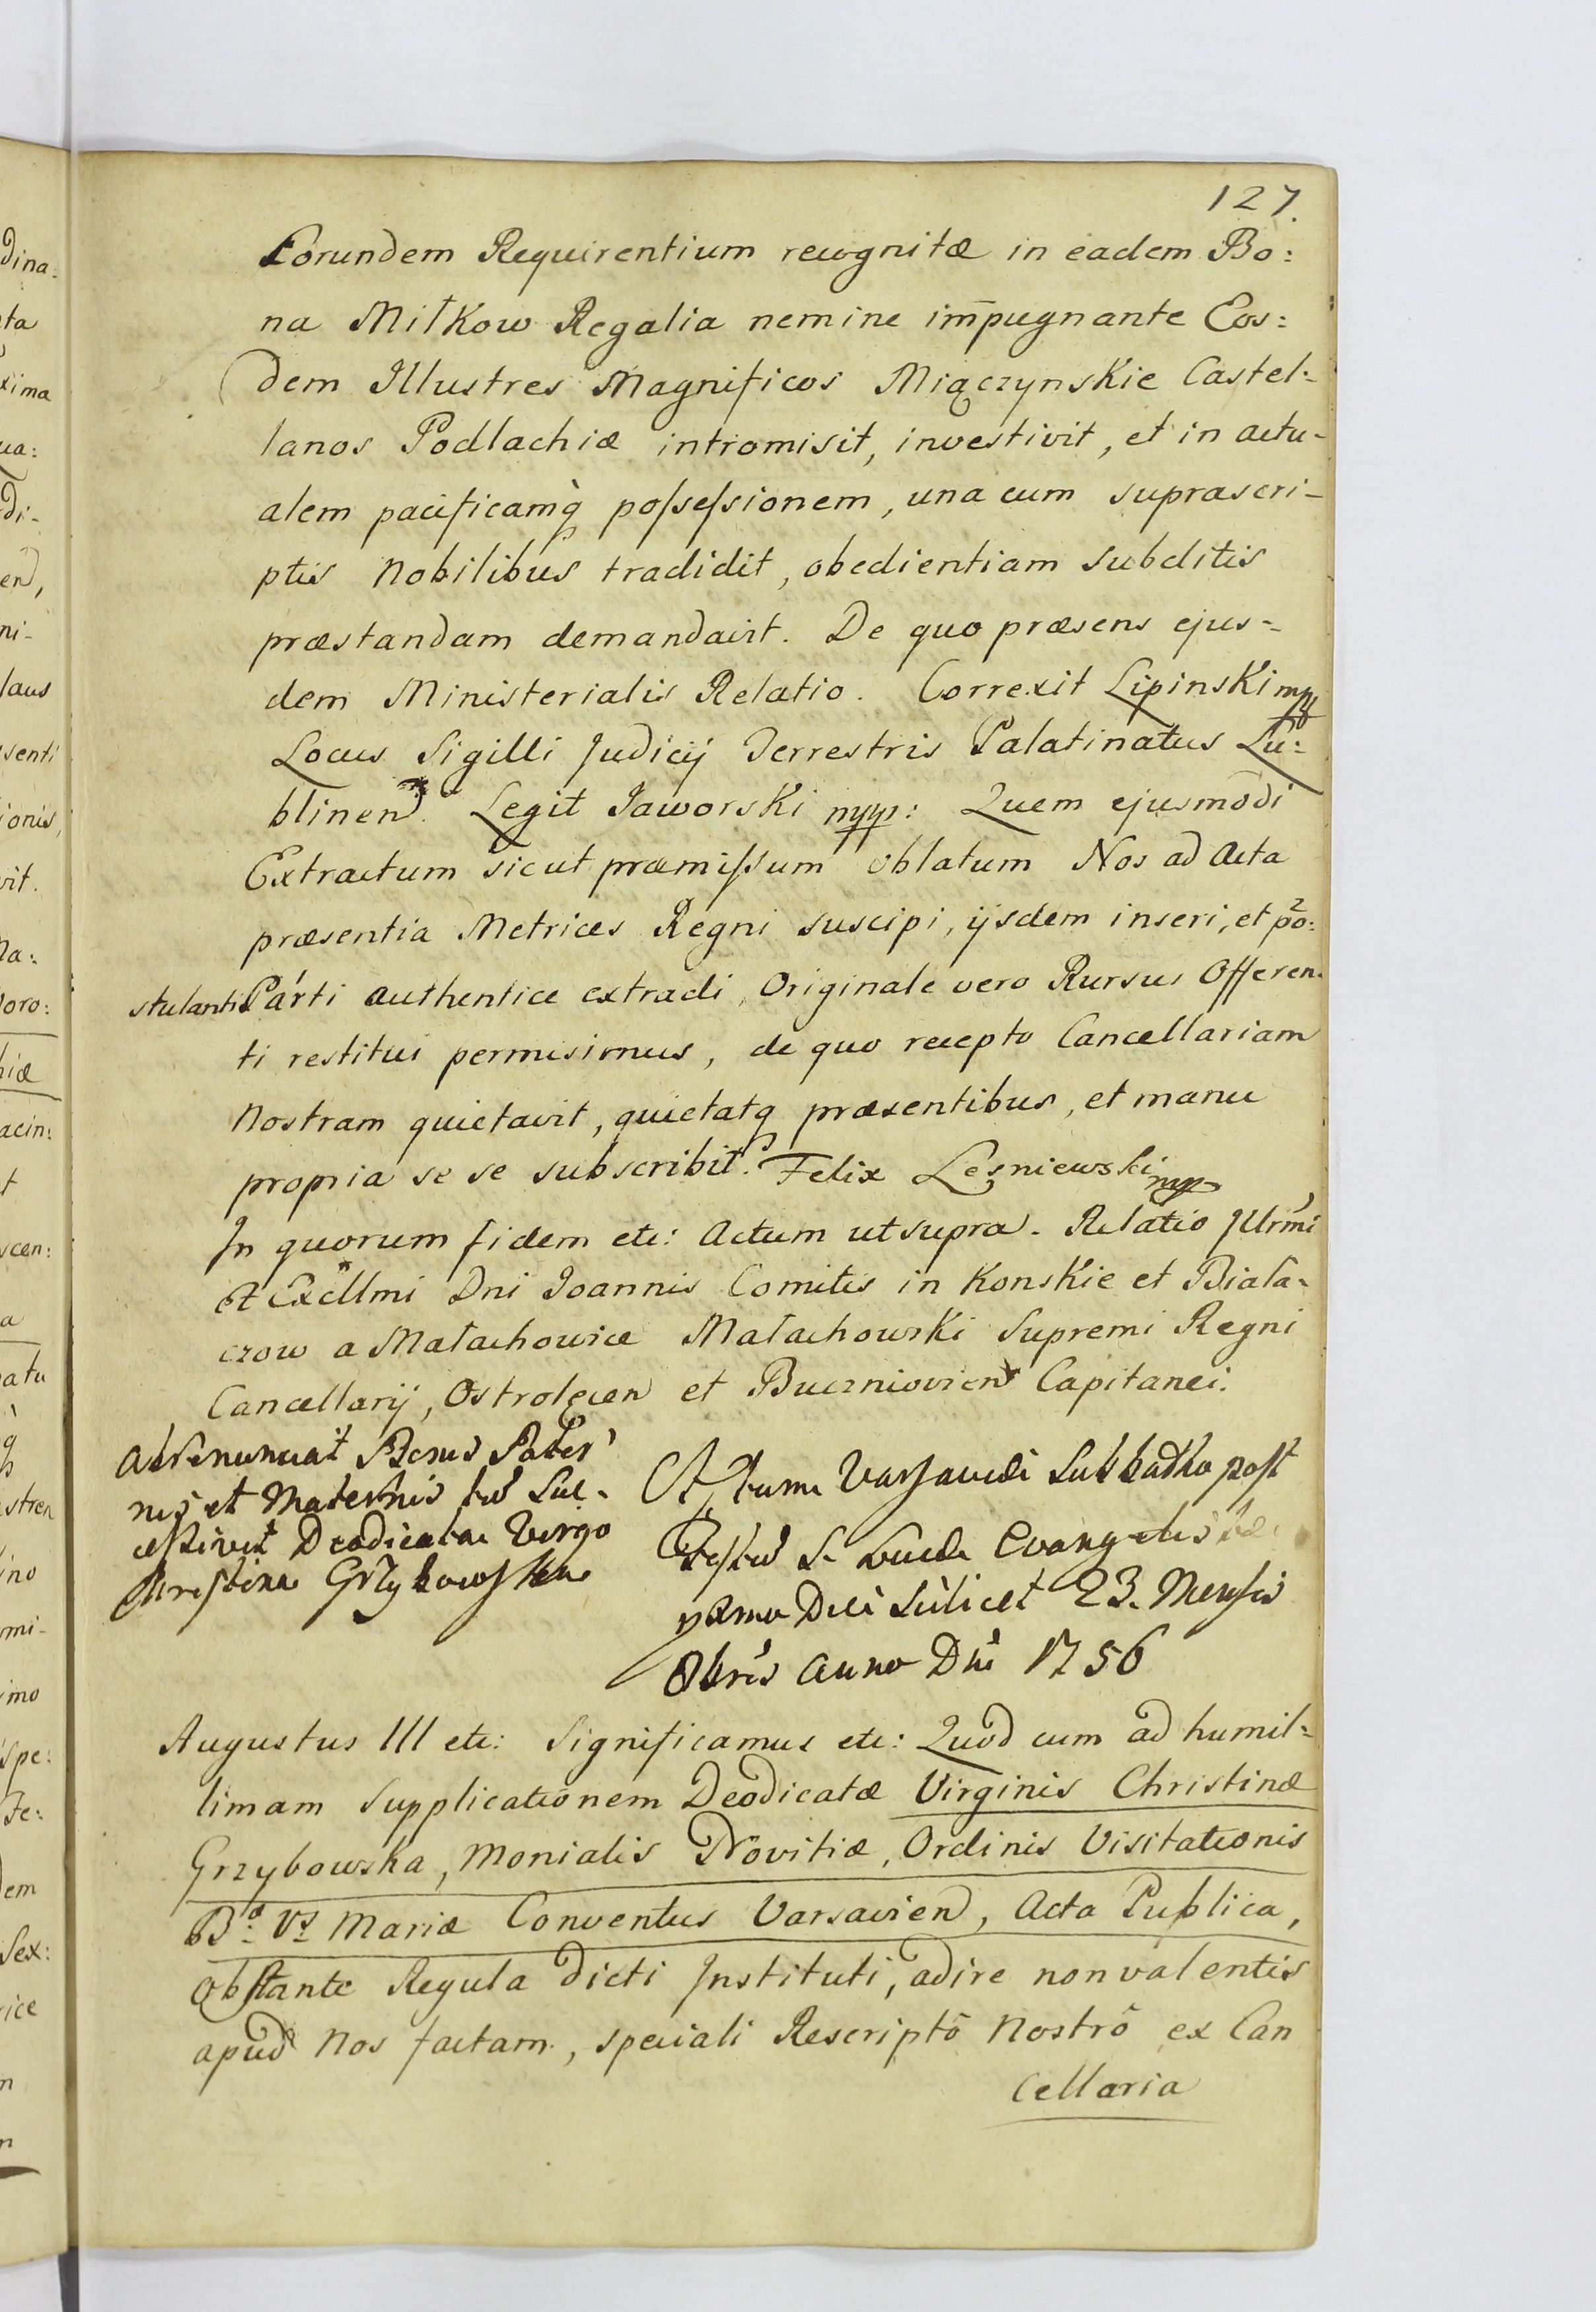 127.
Eorundem Requirentium recognitæ in eadem Bo:
na Miłkow Regalia nemine im̄pugnante Eos:
dem Illustres Magnificos Miączynskie Castel:
lanos Podlachiæ intromisit, investivit, et in actu-
alem pacificamq̀ poſseſsionem, una cum suprascri-
ptis Nobilibus tradidit, obedientiam subditis
præstandam demandavit. De quo præsens ejus-
dem Ministerialis Relatio. Correxit Lipinski mp
Locus Sigilli Judicij Terrestris Palatinatus Lu:
blinen. Legit Jaworski mpp: Quem ejusmodi
Extractum sicut præmiſsum oblatum Nos ad Acta
præsentia Metrices Regni suscipi, ijsdem inseri, et po:
stulanti Parti authentice extradi, Originale vero Rursus Offeren:
ti restitui permisimus, de quo recepto Cancellariam
Nostram quietavit, quietatq præsentibus, et manu
propria se se subscribit. Felix Leśniewski mpp
In quorum fidem etc: Actum ut supra. Relatio Illrmi
et Excllmi Dni Joannis Comitis in Konskie et Biała-
czow a Małachowice Małachowski Supremi Regni
Cancellarij, Ostrolęcen et Buczniovien Capitanei.
Abrenunciat Bonis Pater
nis et Maternis
ceſsivis Deodicatæ Virgo
Christina Grzybowska
Actum Varsaviæ Sabbatho post
Festum S. Lucæ Evangelistæ
Die Scilicet 23. Mensis
8bris Anno Dni 1756
Augustus III etc: Significamus etc: Quod cum ad humil:
limam Supplicationem Deodicatæ Virginis Christinæ
Grzybowska, Monialis Novitiæ, Ordinis Visitationis
B. V. Mariæ Conventus Varsavien, Acta Publica,
obstante Regula dicti Instituti, adire non valentis
apud Nos factam, speciali Rescriptô Nostrô ex Can
cellaria